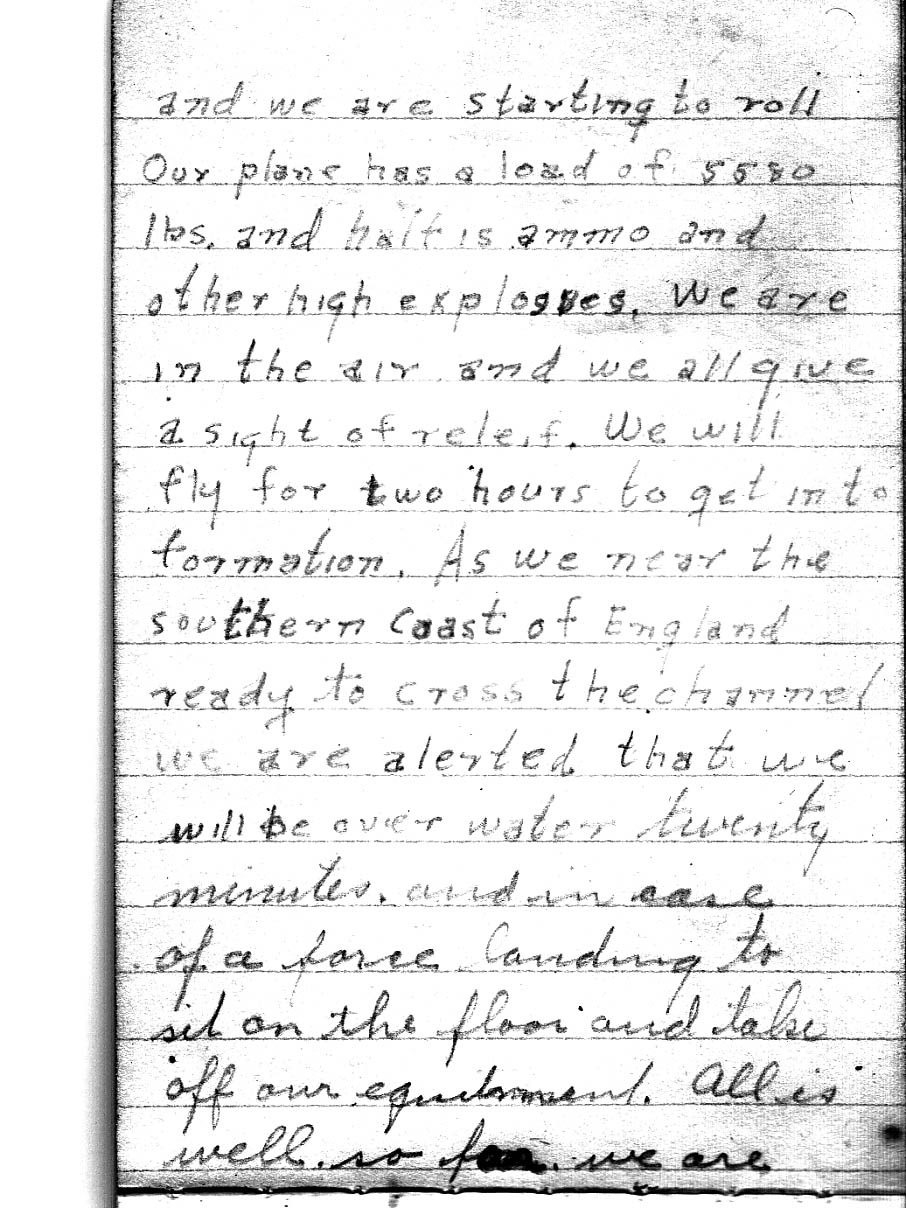 and we are starting to roll
Our plane has a load of 5580
lbs. and half is ammo and
other high explosses. We are
in the air and we all give
a sight of releif. We will
fly for two hours to get in to
formation. As we near the
southern Coast of England
ready to cross the channel
we are alerted that we
will be over water twenty
minutes. and in case
of a force landing to
sit on the floor and take
off our equitment. All is
well. so far. we are